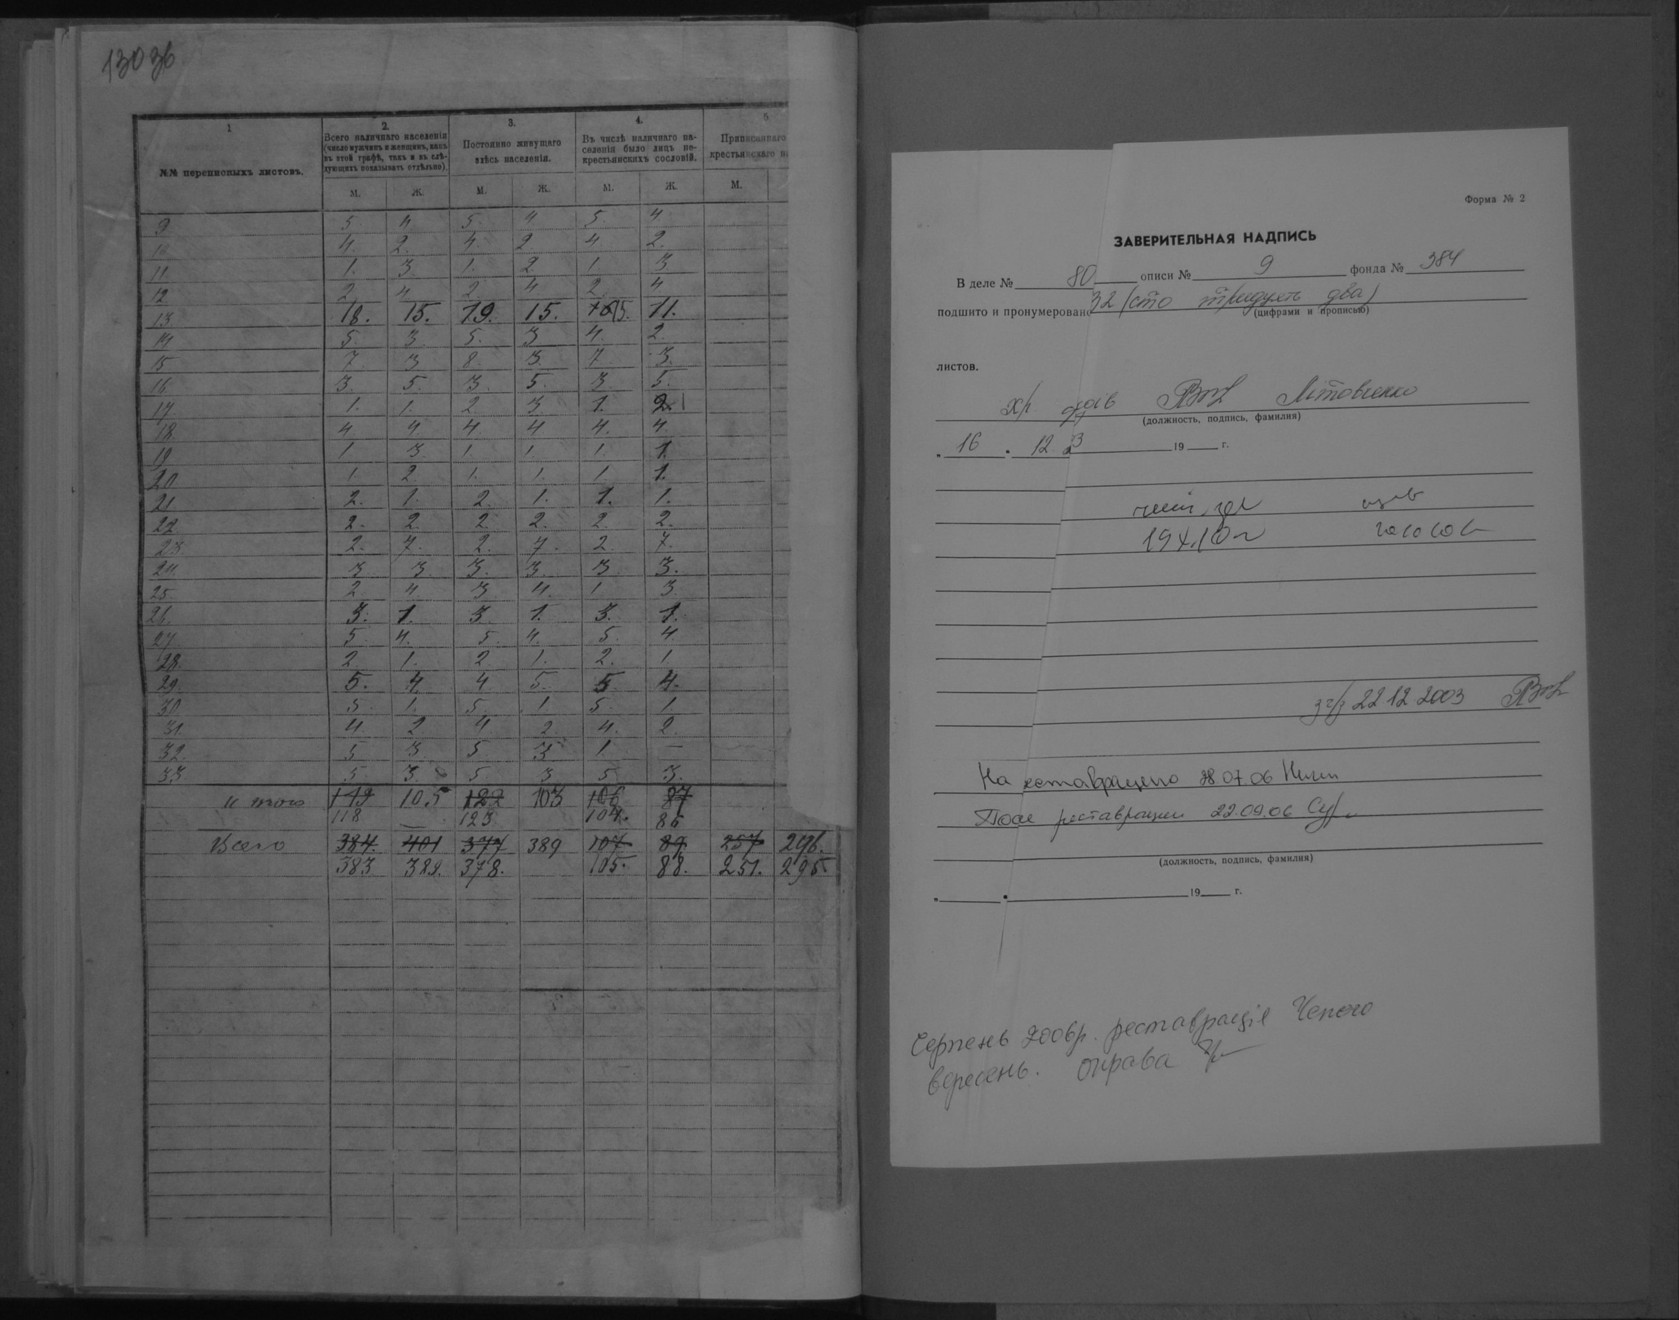 130 зв
1
2.
3.
4.
5
№№ переписныхъ листовъ.
Всего наличнаго населенія (число мужчин и женщинъ, какъ въ этой графѣ, такъ и въ слѣдующихъ показывать отдѣльно).
Постоянно живущаго здѣсь населенія.
Въ числѣ наличнаго населенія было лицъ некрестьянскихъ сословій.
Приписаннаго
крестьянскаго
М. Ж. М. Ж. М. Ж. М.
9 5. 4 5. 4 5. 4
10 4. 2. 4. 2 4 2.
11 1. 3 1. 2 1 3
12 2 4 2 4 2. 4
13 18. 15. 19. 15. 15. 11.
14 5. 3 5. 3 4. 2.
15 7. 3 8. 3. 7 3.
16 3. 5. 3 5. 3 5.
17. 1. 1. 2 3 1. 1
18. 4 4 4. 4 4. 4
19 1 3 1. 1 1. 1
20 1. 2 1. 1. 1 1.
21 2. 1. 2. 1. 1. 1.
22 2. 2. 2 2. 2. 2.
23. 2. 7. 2. 7. 2 7.
24. 3 3 3. 3 3 3.
25 2 4 3 4. 1 3
26. 3. 1. 3 1. 3. 1.
27 5 4. 5. 4. 5. 4
28. 2 1. 2 1. 2. 1
29 5. 4 4 5. 5. 4.
30 5. 1. 5. 1 5. 1
31. 4. 2 4 2 4. 2.
32. 5 3 5 3 1 —
33 5 3. 5 3 5 3.
Итого 119 105 122 103 106 87
118 123 104. 86
Всего 384. 401 377 389 107 89 257 296.
383 389. 378. 105. 88. 251. 295
Форма № 2
ЗАВЕРИТЕЛЬНАЯ НАДПИСЬ
В деле № 80 описи № 9 фонда № 384
подшито и пронумеровано 32 (сто тридцать два)
(цифрами и прописью)
листов.
хр
(должность, подпись, фамилия)
16 . 12 19 г.
22 12 2003
На реставрацию 28 07.06
После реставрации 22.09.06
(должность, подпись, фамилия)
19 г.
Серпень 2006р. реставрація
вересень. оправа